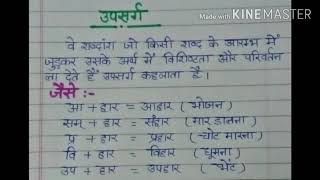 Made with KINEMASTER
उपसर्ग
वे शब्दांश जो किसी शब्द के आरम्भ में
जुड़कर उसके अर्थ में विशिष्टता और परिवर्तन
ला देते हैं उपसर्ग कहलाता है।
जैसे :-
आ + हार = आहार (भोजन)
सम् + हार = संहार (मार डालना)
प्र + हार = प्रहार (चोट मारना)
वि + हार = विहार (घूमना)
उप + हार = उपहार (भेंट)